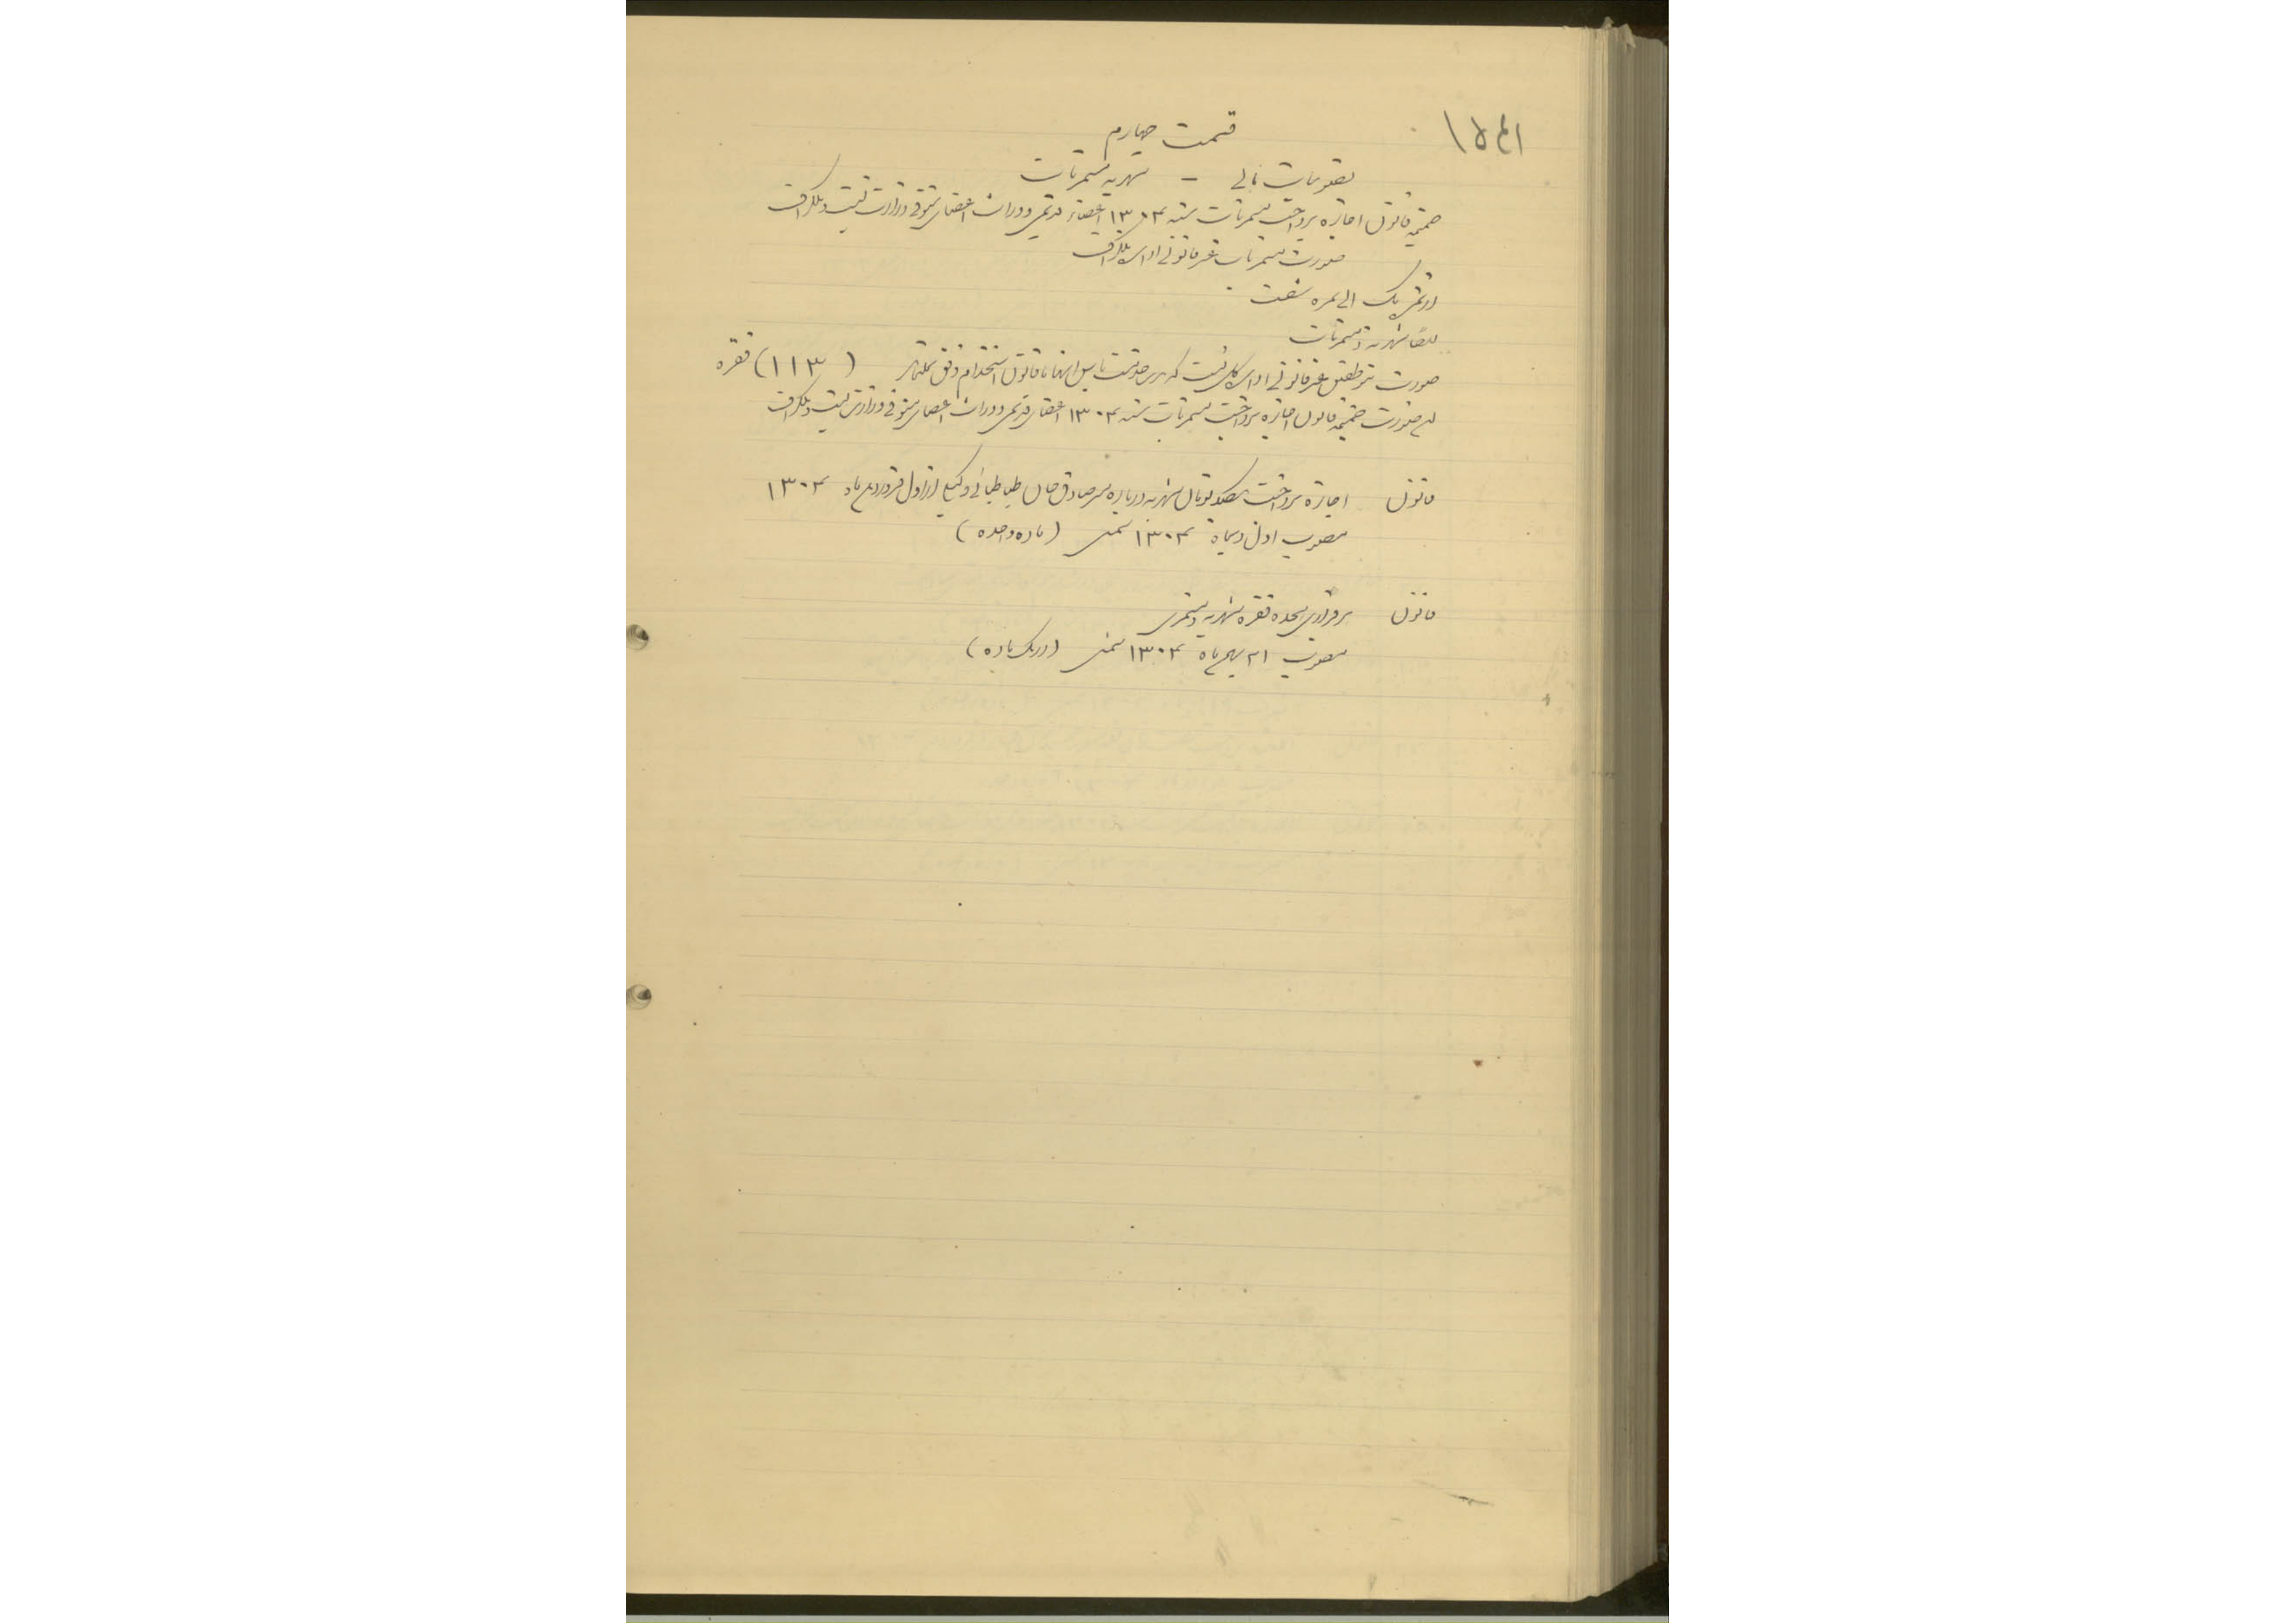 قسمت چهارم
تصویبات مالی – شهریه مستمریات
ضمیمه قانون اجازه پرداخت مستمریات سنه ۱۳۰۴ اعضاء قدیمی و وراث اعضای متوفی وزارت پست و تلگراف
صورت مستمریات غیر قانونی اداری تلگراف
از نمره یک الی نمره شصت
ایضا شهریه و مستمریات
صورت موظفین غیر قانونی اداره کل پست که مدت خدمت اینها با قانون استخدام وفق (۱۱۳) فقره
صورت ضمیمه قانون اجازه پرداخت مستمریات سنه ۱۳۰۴ اعضای قدیمی و وراث اعضای متوفی وزارت پست و تلگراف
قانون اجازه پرداخت یکصد تومان شهریه درباره میر صادق خان طباطبائی وکیل از اول فروردین ماه ۱۳۰۴
مصوب اول دیماه ۱۳۰۴ شمسی (ماده واحده)
قانون برقراری فقره شهریه و مستمری
مصوب ۲۱ بهمن ماه ۱۳۰۴ شمسی (در یک ماده)